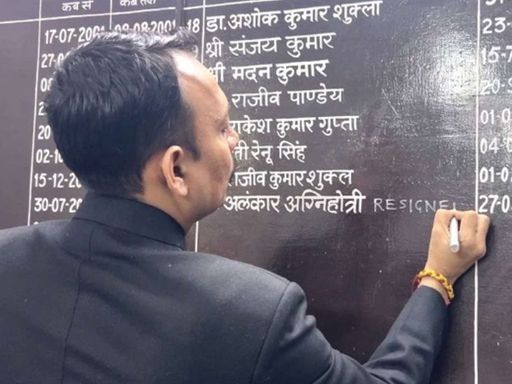 कब से कब तक
17-07-2001 08-08-2001 18 डा. अशोक कुमार शुक्ला 23-
27-0 श्री संजय कुमार 15-7
श्री मदन कुमार 20-
राजीव पाण्डेय 01-0
राकेश कुमार गुप्ता 01-0
02-10 ती रेनू सिंह 04-0
15-12-20 राजीव कुमार शुक्ल 01-0
30-07-20 अलंकार अग्निहोत्री RESIGNE 27-0